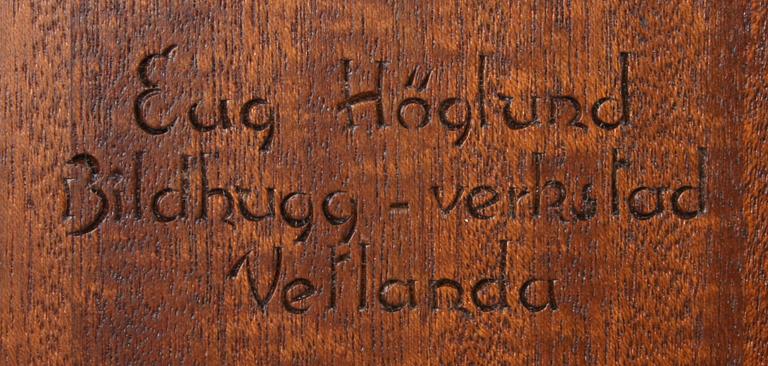 Eug Höglund
Bildhugg - verkstad
Vetlanda